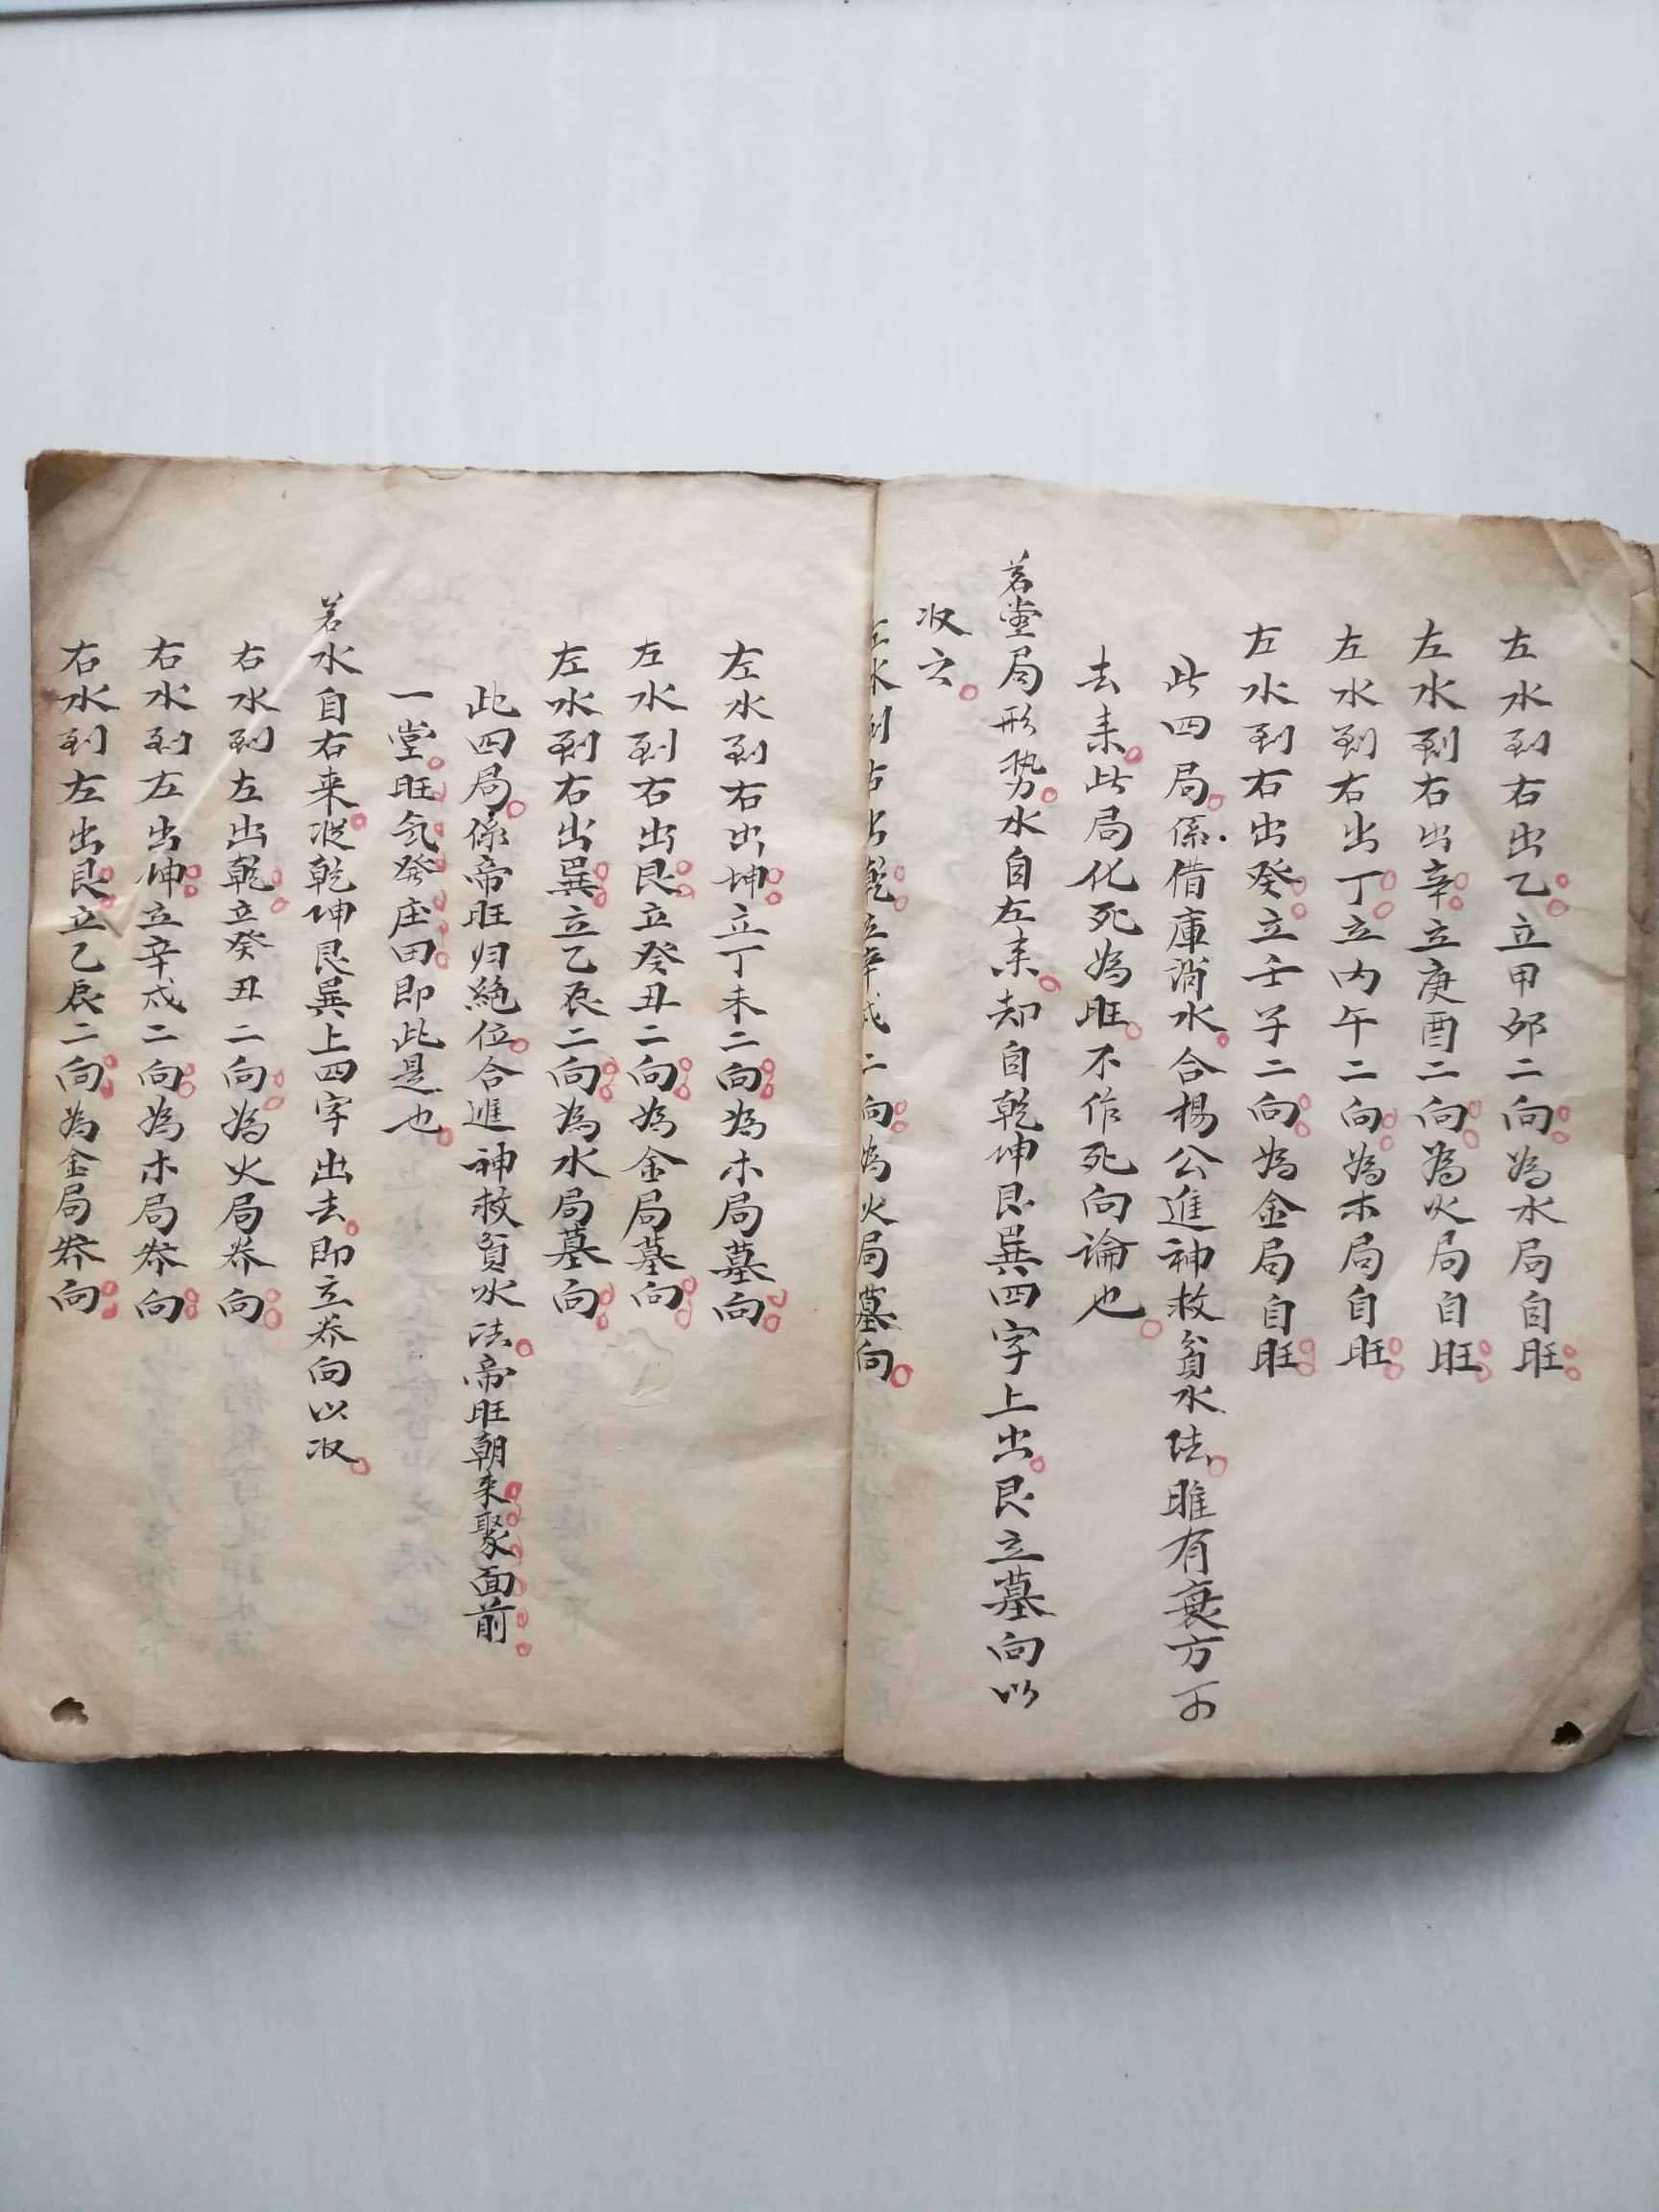 左水到右出乙立甲卯二向為水局自旺
左水到右出辛立庚酉二向為火局自旺
左水到右出丁立丙午二向為木局自旺
左水到右出癸立壬子二向為金局自旺
此四局係借庫消水合楊公進神救貧水法唯有衰方可
去来此局化死為旺不作死向論也
若堂局形势水自左来却自乾坤艮巽四字上出艮立墓向以
収之
左水到右出乾立辛戌二向為火局墓向
左水到右出坤立丁未二向為木局墓向
左水到右出艮立癸丑二向為金局墓向
左水到右出巽立乙辰二向為水局墓向
此四局係帝旺归絶位合進神救貧水法帝旺朝来聚面前
一堂旺気發庄田即此是也
若水自右来従乾坤艮巽上四字出去即立养向以収
右水到左出乾立癸丑二向為火局养向
右水到左出坤立辛戌二向為木局养向
右水到左出艮立乙辰二向為金局养向